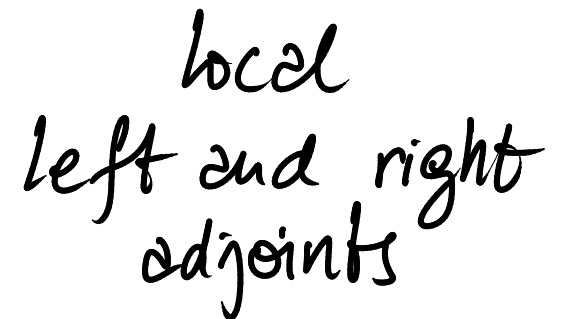 local
left and right
adjoints